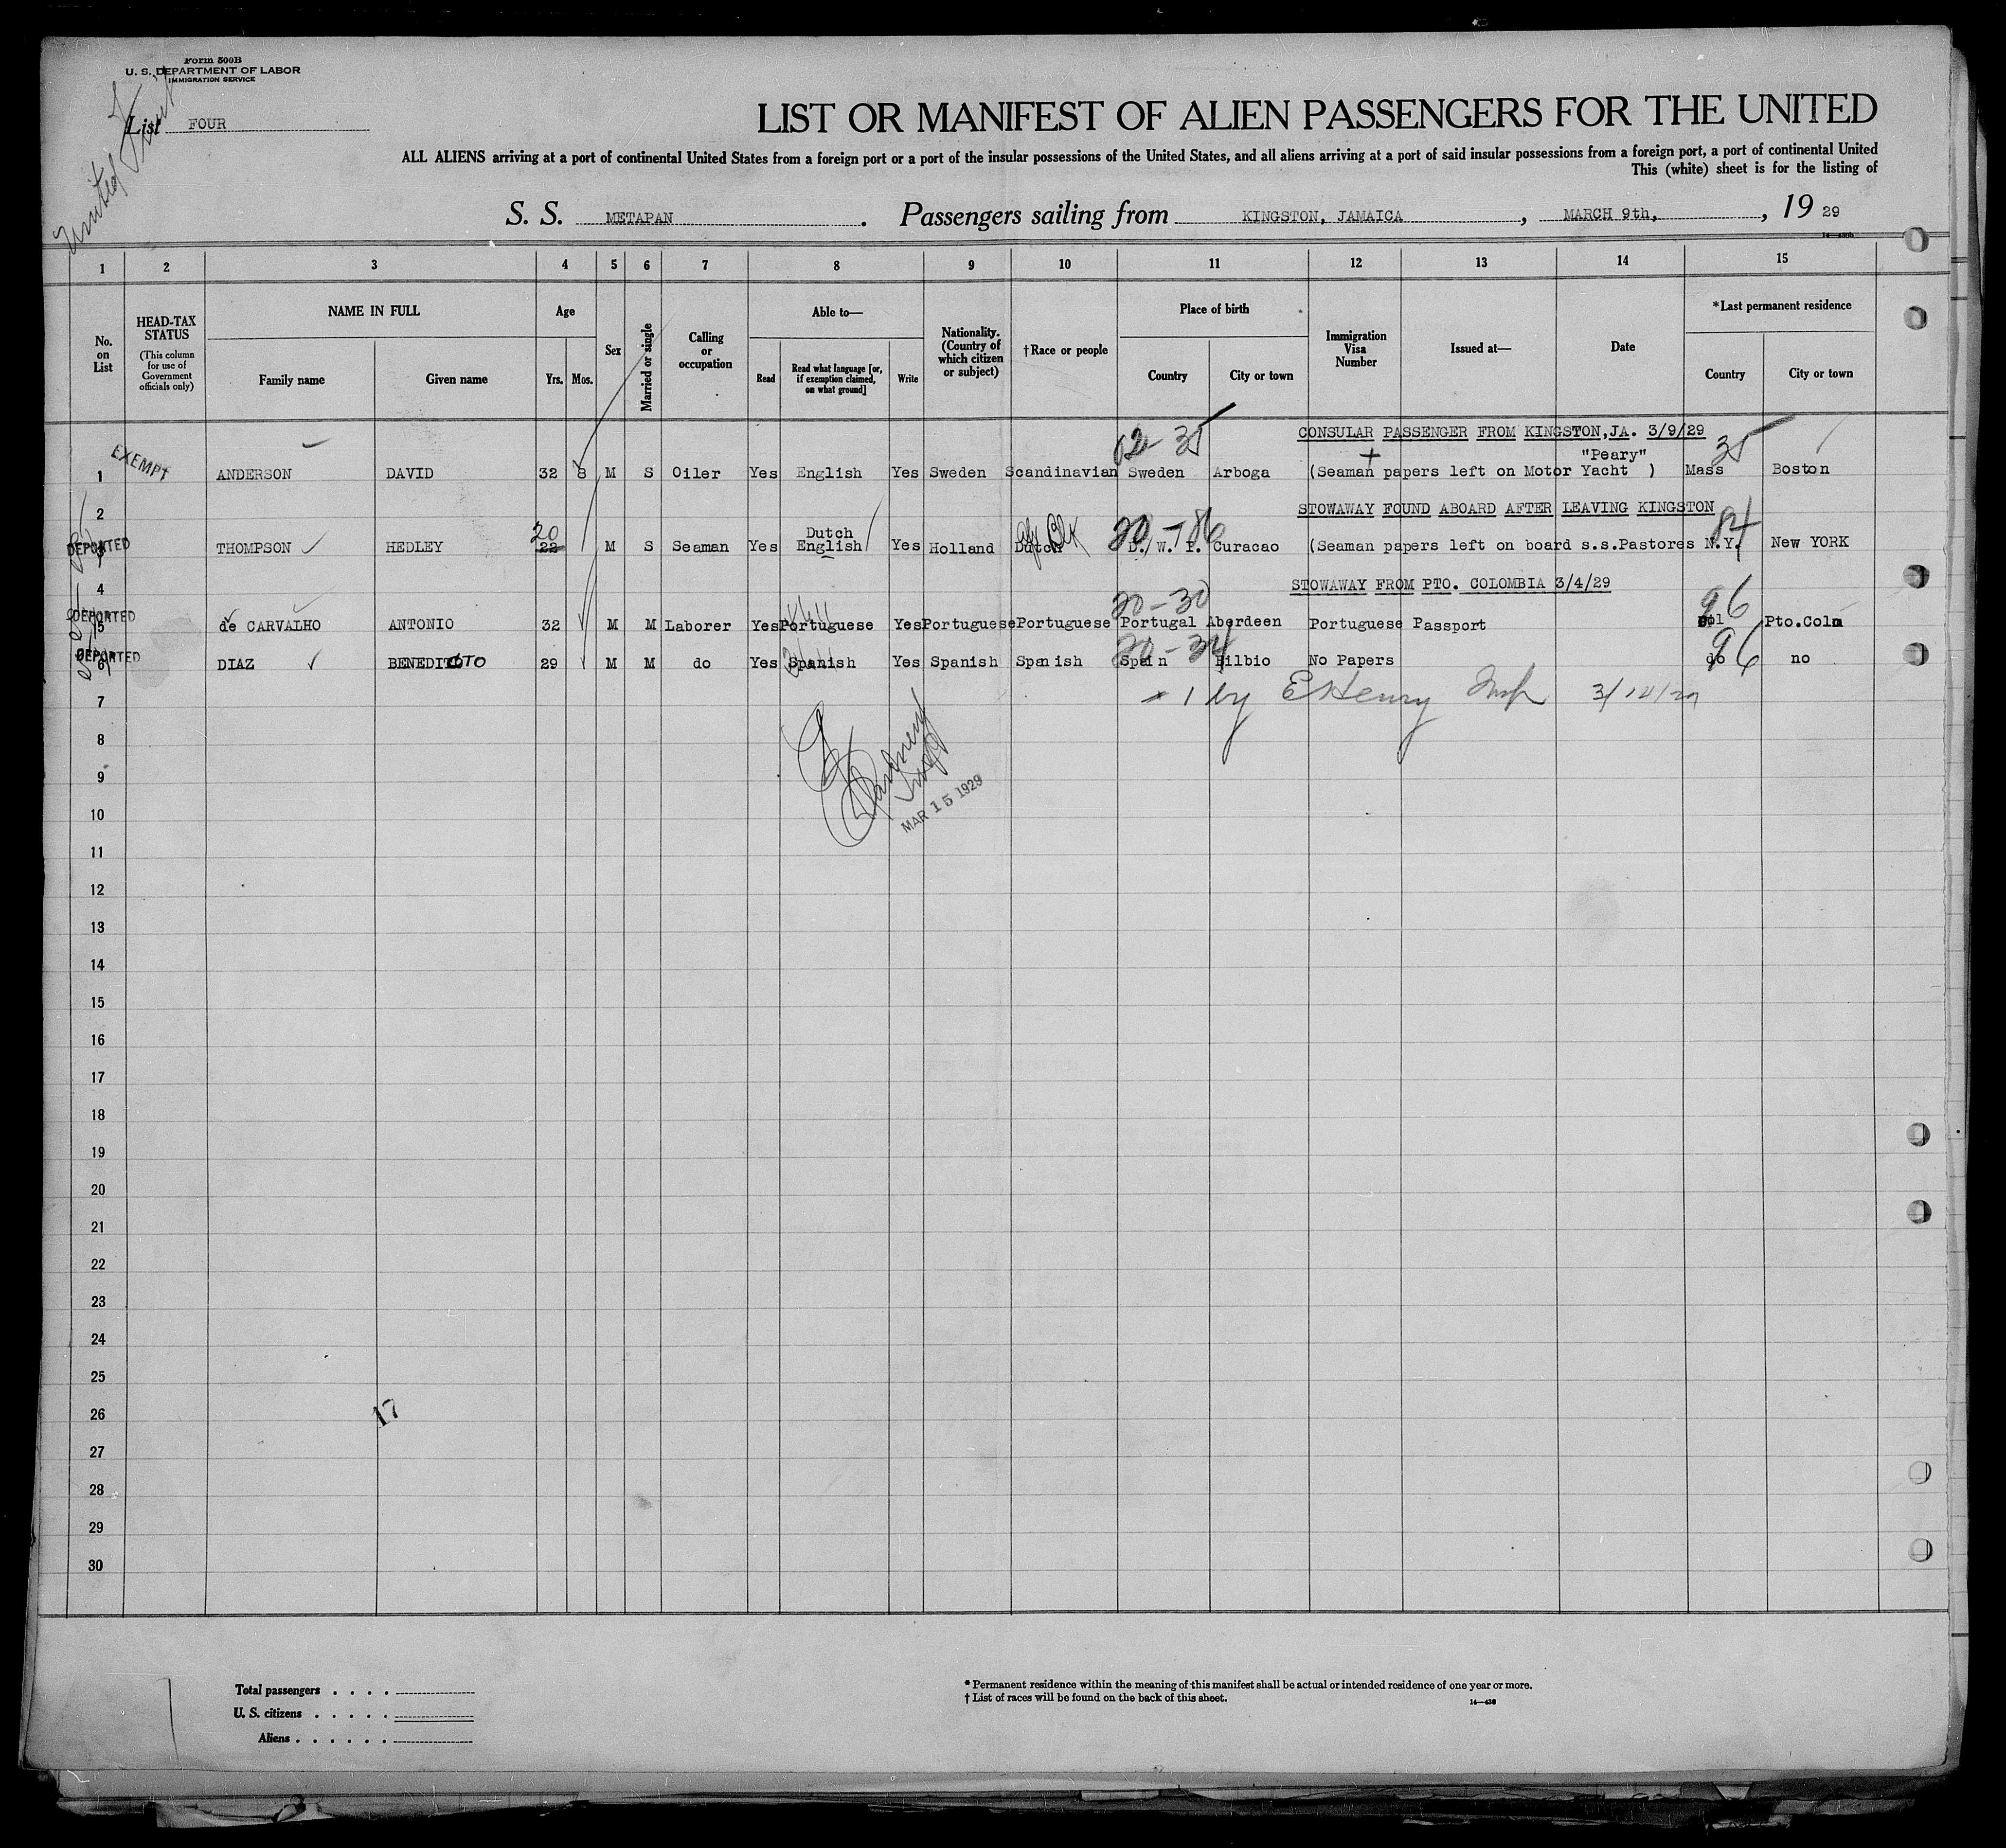 Form 500B
U. S. DEPARTMENT OF LABOR
IMMIGRATION SERVICE
United Fruit
List FOUR
LIST OR MANIFEST OF ALIEN PASSENGERS FOR THE UNITED
ALL ALIENS arriving at a port of continental United States from a foreign port or a port of the insular possessions of the United States, and all aliens arriving at a port of said insular possessions from a foreign port, a port of continental United
This (white) sheet is for the listing of
S. S. METAPAN. Passengers sailing from KINGSTON, JAMAICA, MARCH 9th, , 19 29
1 2 3 4 5 6 7 8 9 10 11 12 13 14 15
No. on List
HEAD-TAX STATUS
(This column for use of Government officials only)
NAME IN FULL
Family name
Given name
Age
Yrs. Mos.
Sex
Married or single
Calling or occupation
Able to—
Read
Read what language [or, if exemption claimed, on what ground]
Write
Nationality. (Country of which citizen or subject)
†Race or people
Place of birth
Country
City or town
Immigration Visa Number
Issued at—
Date
*Last permanent residence
Country
City or town
CONSULAR PASSENGER FROM KINGSTON,JA. 3/9/29
35
"Peary"
EXEMPT
1 ANDERSON DAVID 32 8 M S Oiler Yes English Yes Sweden Scandinavian Sweden Arboga (Seaman papers left on Motor Yacht ) Mass Boston
2 STOWAWAY FOUND ABOARD AFTER LEAVING KINGSTON
84
20 Dutch Blk 20-86
DEPORTED
3 THOMPSON HEDLEY 22 M S Seaman Yes English Yes Holland Dutch D. W. I. Curacao (Seaman papers left on board s.s.Pastores N.Y. New YORK
4 STOWAWAY FROM PTO. COLOMBIA 3/4/29
20-30 96
DEPORTED
5 de CARVALHO ANTONIO 32 M M Laborer Yes Portuguese Yes Portuguese Portuguese Portugal Aberdeen Portuguese Passport Col Pto.Colm
20-34 96
DEPORTED
6 DIAZ BENEDITOTO 29 M M do Yes Spanish Yes Spanish Spanish Spain Bilbio No Papers do no
7 1 by E Henry Insp 3/12/29
8
9
MAR 15 1929
10
11
12
13
14
15
16
17
18
19
20
21
22
23
24
25
26
17
27
28
29
30
Total passengers . . . .
U. S. citizens . . . . .
Aliens . . . . . .
* Permanent residence within the meaning of this manifest shall be actual or intended residence of one year or more.
† List of races will be found on the back of this sheet.
14—430